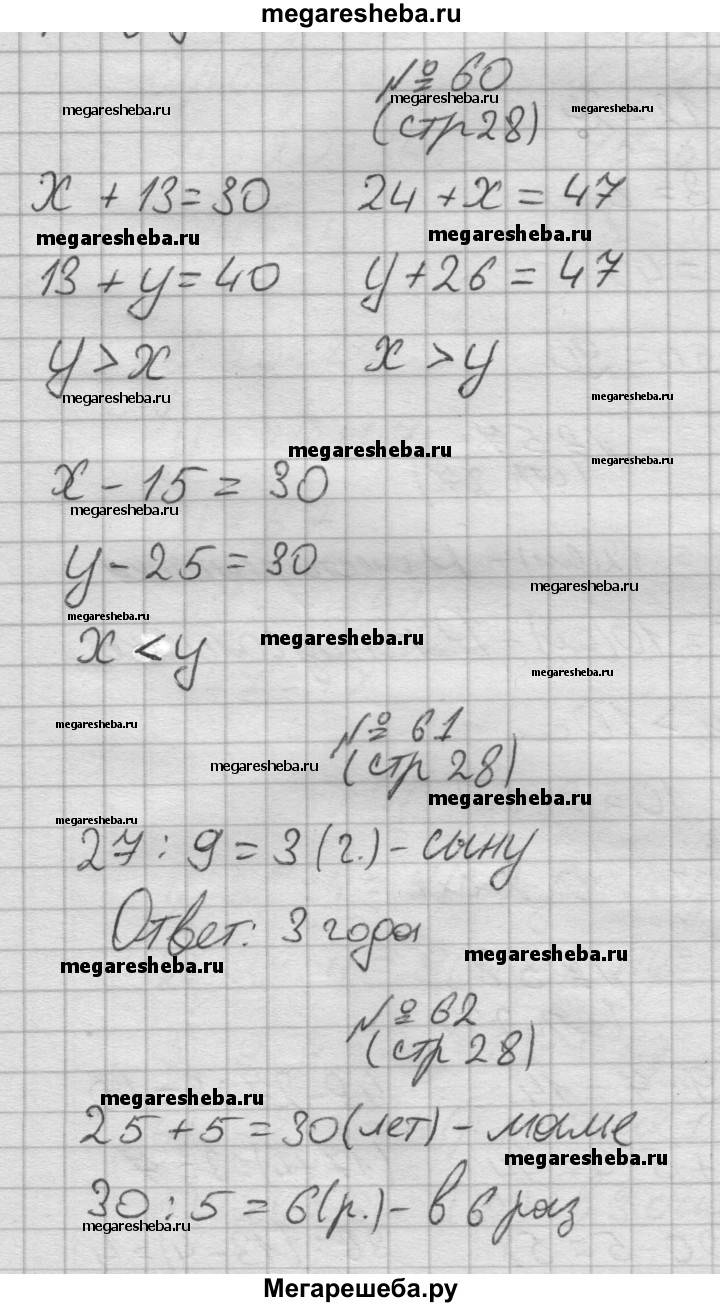 megaresheba.ru
№ 60
megaresheba.ru megaresheba.ru megaresheba.ru
(стр 28)
x + 13 = 30 24 + x = 47
megaresheba.ru megaresheba.ru
13 + y = 40 y + 26 = 47
y > x x > y
megaresheba.ru megaresheba.ru
megaresheba.ru megaresheba.ru
x - 15 = 30
megaresheba.ru
y - 25 = 30
megaresheba.ru
megaresheba.ru
x < y megaresheba.ru
megaresheba.ru
megaresheba.ru № 61
megaresheba.ru (стр 28)
megaresheba.ru
megaresheba.ru
27 : 9 = 3 (г.) - сыну
Ответ: 3 года
megaresheba.ru megaresheba.ru
№ 62
(стр 28)
megaresheba.ru
25 + 5 = 30 (лет) - маме
megaresheba.ru
30 : 5 = 6 (р.) - в 6 раз
megaresheba.ru
Мегарешеба.ру